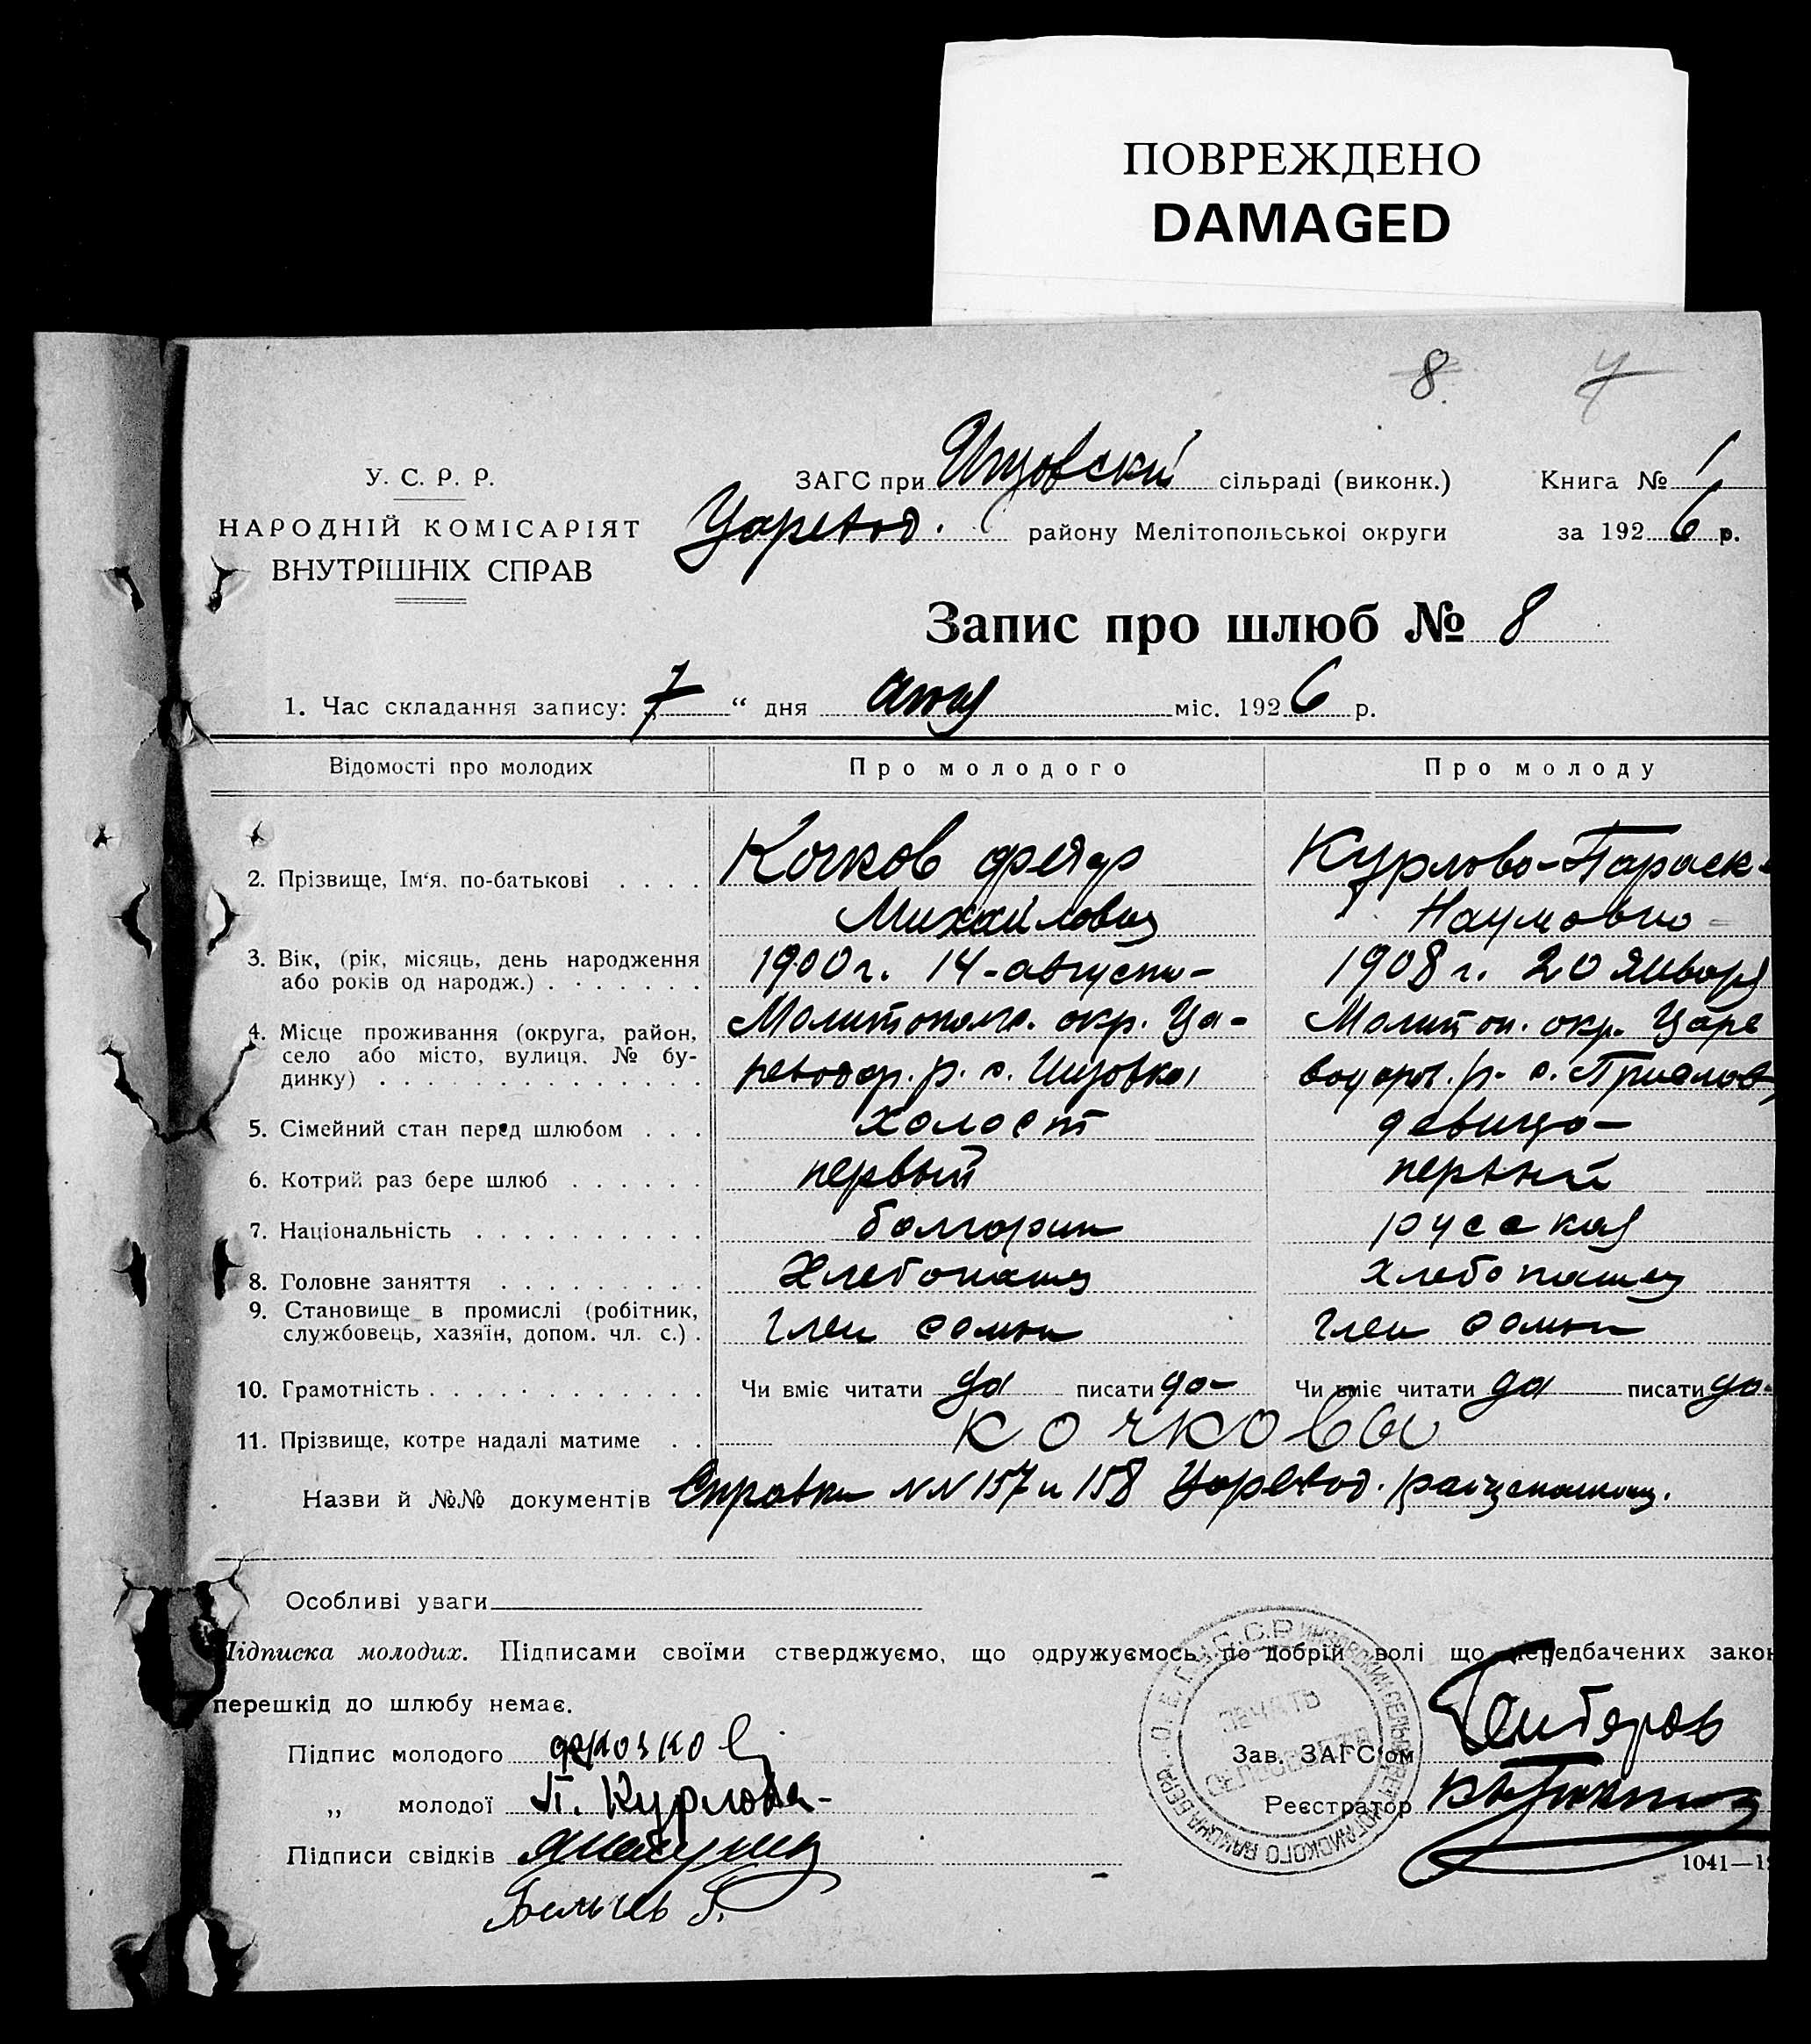 ПОВРЕЖДЕНО
DAMAGED
8. 7
У. С. Р. Р.
НАРОДНІЙ КОМІСАРІЯТ
ВНУТРІШНІХ СПРАВ
ЗАГС при сільраді (виконк.) Книга № 1
Царевод. району Мелітопольської округи за 1926 р.
Запис про шлюб № 8
1. Час складання запису: „7“ дня міс. 1926 р.
Відомості про молодих Про молодого Про молоду
2. Прізвище, Ім'я, по-батькові Кочков Федор Курлова Параск
Михайлович Наумовна
3. Вік, (рік, місяць, день народження 1900 г. 14 августа 1908 г. 20 января
або років од народж.)
4. Місце проживання (округа, район, окр. Ца- окр. Царе
село або місто, вулиця, № бу- р. с. р. с.
динку)
5. Сімейний стан перед шлюбом холост девица
6. Котрий раз бере шлюб первый первый
7. Національність болгарин русская
8. Головне заняття Хлебопашец хлебопашец
9. Становище в промислі (робітник, член семьи член семьи
службовець, хазяїн, допом. чл. с.)
10. Грамотність Чи вміє читати да писати да Чи вміє читати да писати да
11. Прізвище, котре надалі матиме Кочковы
Назви й №№ документів Справки NN 157 и 158 Царевод.
Особливі уваги
Підписка молодих. Підписами своїми стверджуємо, що одружуємось по добрій волі що передбачених закон
перешкід до шлюбу немає.
Підпис молодого Кочков
„ молодої П. Курлова
Підписи свідків
Зав. ЗАГС'ом
Реєстратор
1041—1
ПЕЧАТЬ
СЕЛЬСОВЕТА